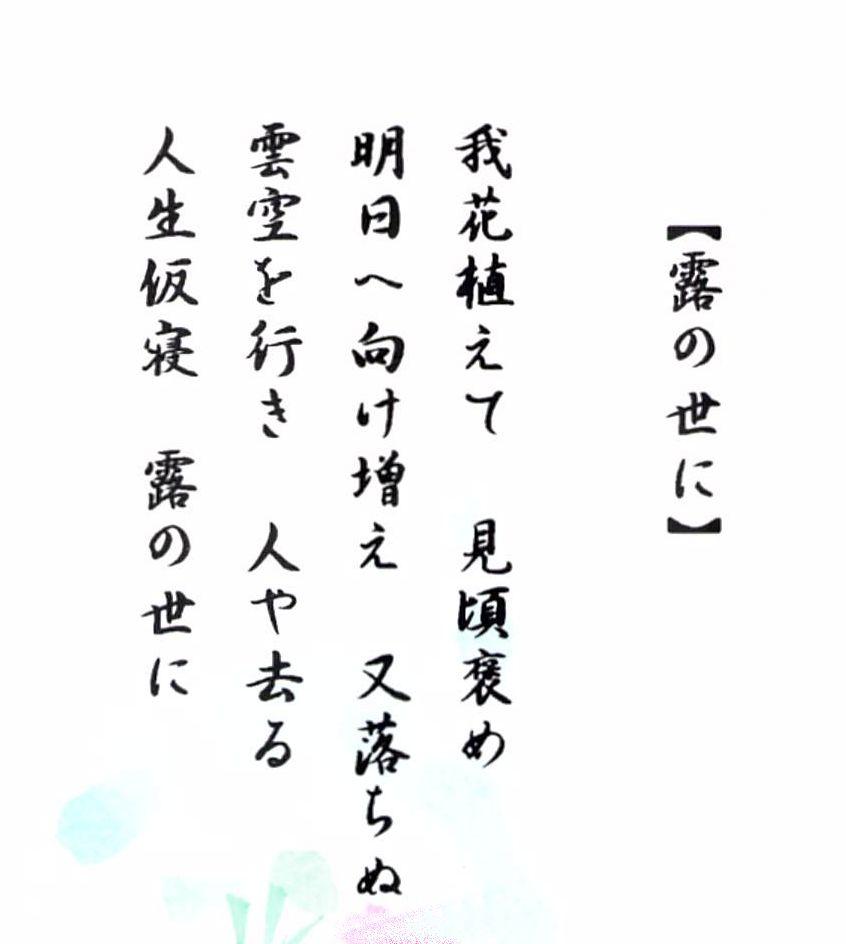 【露の世に】
我花植えて　見頃褒め
明日へ向け増え　又落ちぬ
雲空を行き　人や去る
人生仮寝　露の世に